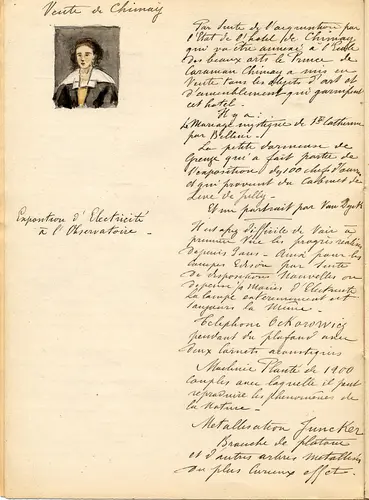 Vente de Chimay
Par suite de l'acquisition par
l'Etat de l'hôtel de Chimay
qui va être annexé à l'Ecole
des beaux arts le Prince de
Caraman Chimay a mis en
vente tous les objets d'art et
d'ameublement qui garnissent
cet hôtel.
Il y a:
Le Mariage mystique de Ste Catherine
par Bellini.
La petite dormeuse de
Greuze qui a fait partie de
l'exposition des 100 chefs d'œuvre
et qui provient du Cabinet de
Live de Jully.
Et un portrait par Van Dyck
Exposition d'Electricité
à l'Observatoire.
Il est assez difficile de voir à
première vue les progrès réalisés
depuis 3 ans. Ainsi pour les
lampes Edison par suite
de dispositions nouvelles on
dépense moins d'Electricité
La lampe extérieurement est
toujours la même.
Téléphone Ochorowicz
pendant du plafond avec
deux cornets acoustiques
Machine Planté de 1900
couples avec laquelle il peut
reproduire les phénomènes de
la Nature.
Metallisation Juncker
Branche de platane
et d'autres arbres metallisés
du plus curieux effet.